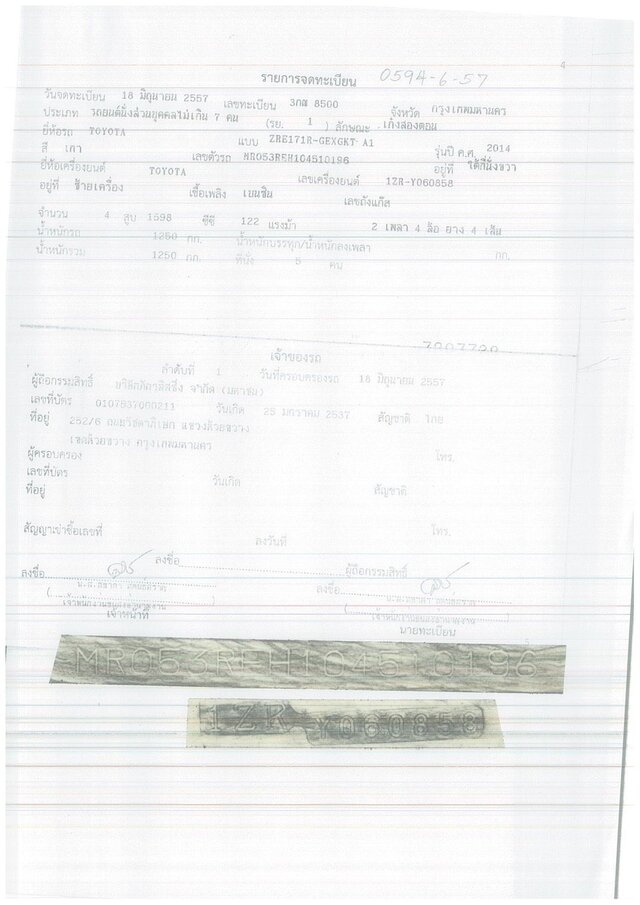 4
รายการจดทะเบียน 0594-6-57
วันจดทะเบียน 18 มิถุนายน 2557 เลขทะเบียน 3กส 8500 จังหวัด กรุงเทพมหานคร
ประเภท รถยนต์นั่งส่วนบุคคลไม่เกิน 7 คน (รย. 1 ) ลักษณะ เก๋งสองตอน
ยี่ห้อรถ TOYOTA แบบ ZRE171R-GEXGKT A1 รุ่นปี ค.ศ. 2014
สี เทา เลขตัวรถ MR053REH104510196 อยู่ที่ ใต้ที่นั่งขวา
ยี่ห้อเครื่องยนต์ TOYOTA เลขเครื่องยนต์ 1ZR-Y060858
อยู่ที่ ซ้ายเครื่อง เชื้อเพลิง เบนซิน เลขถังแก๊ส
จำนวน 4 สูบ 1598 ซีซี 122 แรงม้า 2 เพลา 4 ล้อ ยาง 4 เส้น
น้ำหนักรถ 1250 กก. น้ำหนักบรรทุก/น้ำหนักลงเพลา กก.
น้ำหนักรวม 1250 กก. ที่นั่ง 5 คน
เจ้าของรถ
ลำดับที่ 1 วันที่ครอบครองรถ 18 มิถุนายน 2557
ผู้ถือกรรมสิทธิ์ จำกัด (มหาชน)
เลขที่บัตร วันเกิด 25 มกราคม 2537 สัญชาติ ไทย
ที่อยู่ 252/6 ถนนรัชดาภิเษก แขวงห้วยขวาง
เขตห้วยขวาง กรุงเทพมหานคร
ผู้ครอบครอง โทร.
เลขที่บัตร วันเกิด สัญชาติ
ที่อยู่
สัญญาเช่าซื้อเลขที่ ลงวันที่ โทร.
ลงชื่อ ผู้ถือกรรมสิทธิ์
ลงชื่อ ลงชื่อ
เจ้าหน้าที่ นายทะเบียน
MR053REH104510196
1ZR Y060858